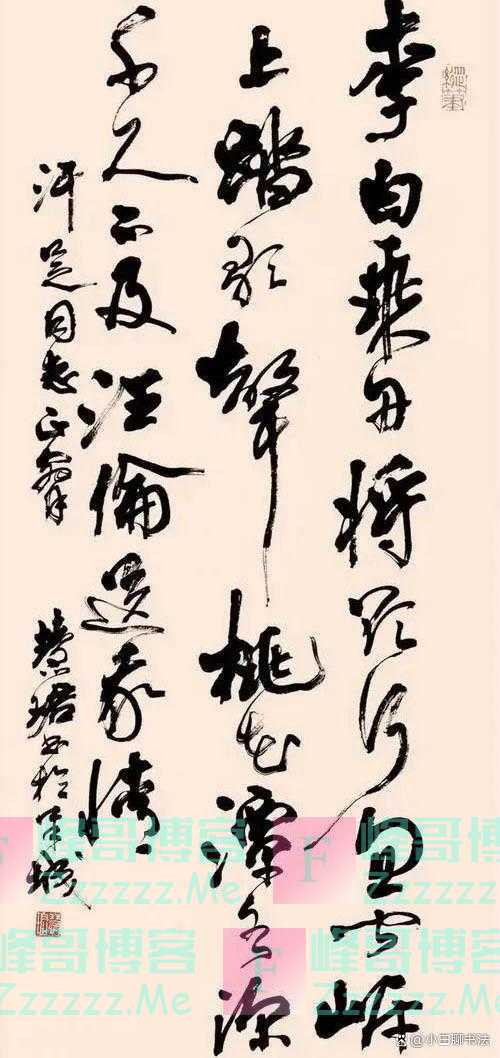 李白乘舟將欲行忽聞岸
上踏歌聲桃花潭水深
千尺不及汪倫送我情
同志正
慧珺书於羊城
F 峰哥博客
Zzzzzz.Me
F 峰哥博客
Zzzzzz.Me
峰哥博客
Zzzzzz.Me
F 峰哥博客
Zzzzzz.Me
@小田聊书法